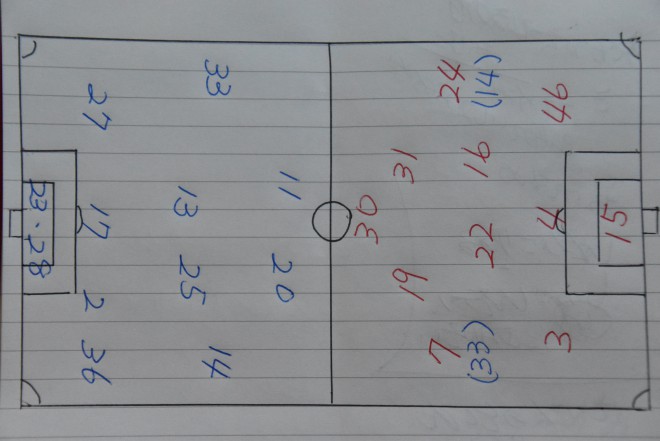 23・28
27
17
2
36
33
13
25
14
11
20
30
31
19
24
(14)
16
22
7
(33)
46
4
3
15